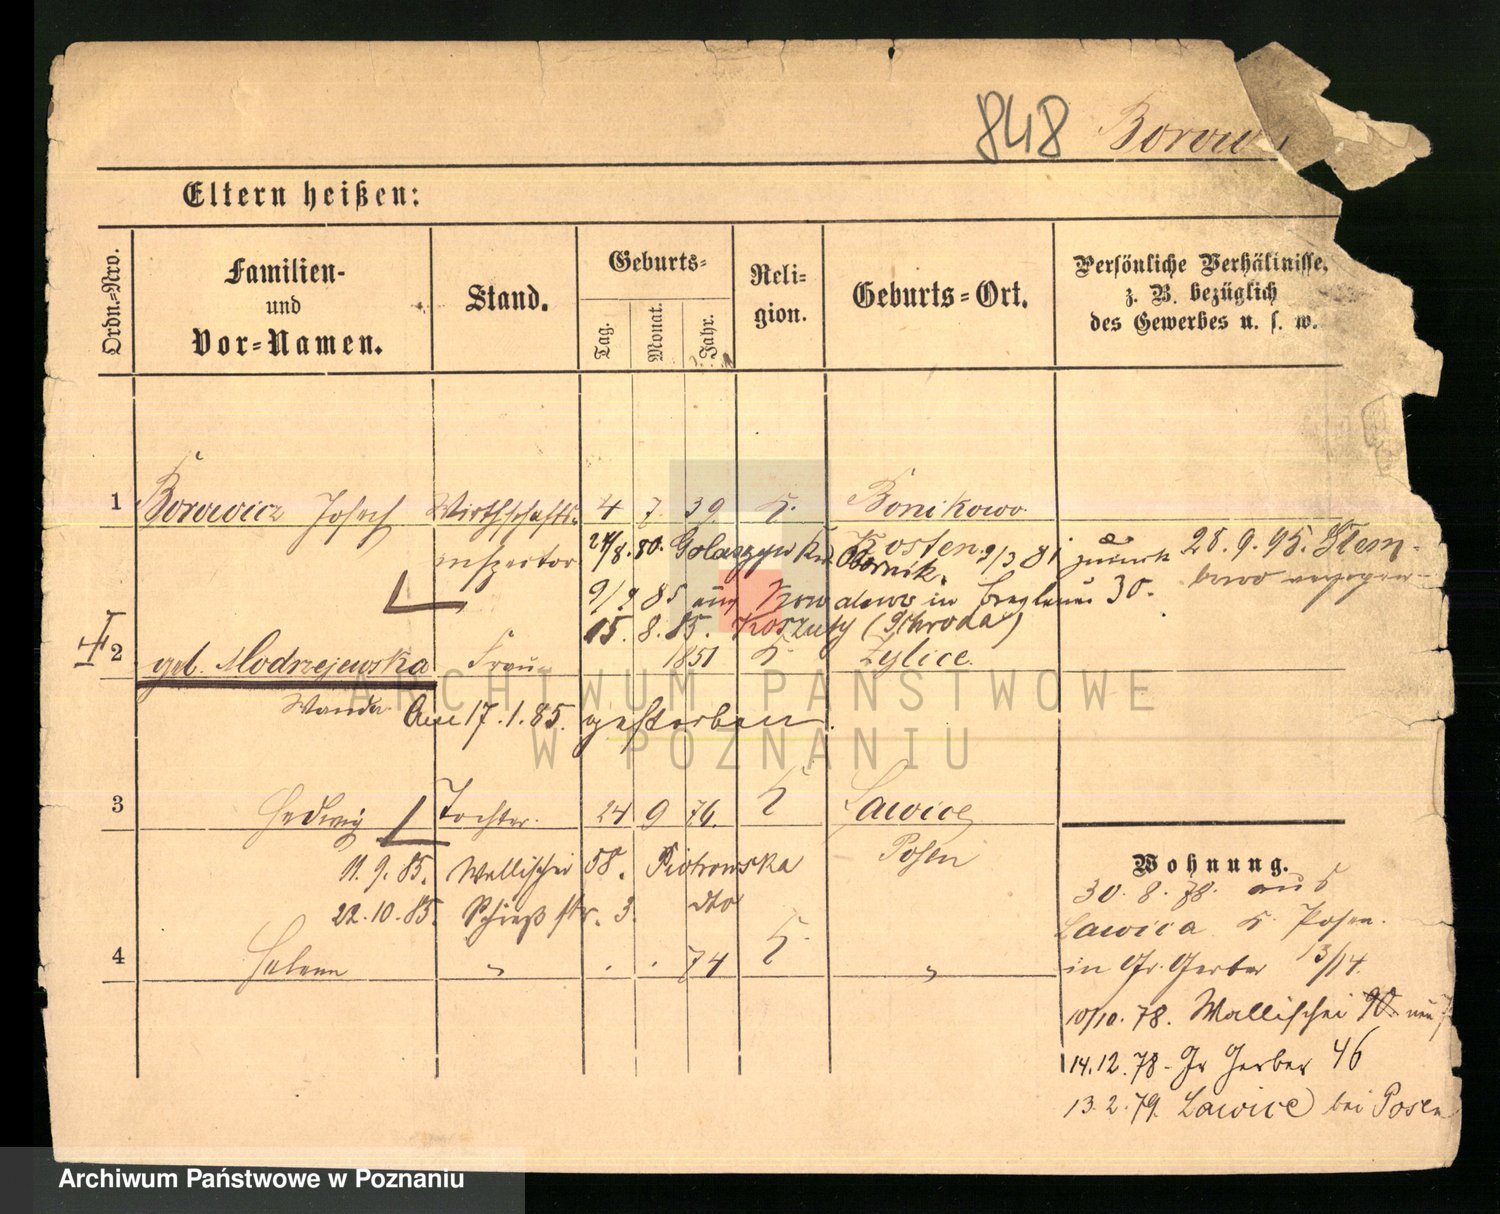 848 Borow
Eltern heißen:
Ordn.-Nro.
Familien-
und
Vor-Namen.
Stand.
Geburts-
Tag.
Monat.
Jahr.
Reli-
gion.
Geburts-Ort.
Persönliche Verhältnisse,
z. B. bezüglich
des Gewerbes u. s. w.
1 Borowicz Joseph Wirthschafts- 4 7. 39. K. Bonikowo
inspector Kosten
24/8. 80. Golaszyn Kr. Obornik. 9/3 81 zurück 28.9.95.
9/9 85 aus in Breslau 30.
15. 8. 85. Koszuty (Schroda)
2 geb. Modrzejewska Frau 1851 K. Zylice.
Wanda Am 17.1.85. gestorben.
3 Hedwig Tochter. 24 9 76. K Lawice
Posen
11.9.85. Wallischei 58. Piotrowska
22.10.85. Schießstr. 3. dto
4 Helene " . . 74 K. "
Wohnung.
30.8.78. aus
Lawica b. Posen.
in Gr. Gerber 13/14.
10/10.78. Wallischei 90 neu
14.12.78 - Gr Gerber 46
13.2.79. Lawice bei Posen
ARCHIWUM PAŃSTWOWE
W POZNANIU
Archiwum Państwowe w Poznaniu